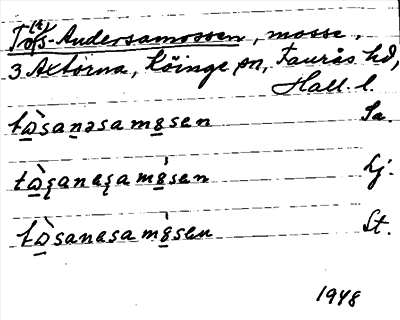 To(r)s-Andersamossen, mosse,
3 Axtorna, Köinge sn, Faurås hd,
Hall. l.
tɷ̀sanəsamɞsen Sa.
tɷ̀ʂanɞʂamɞ́sen Lj.
tɷ̀sanɞsamɞ́sen St.
1948